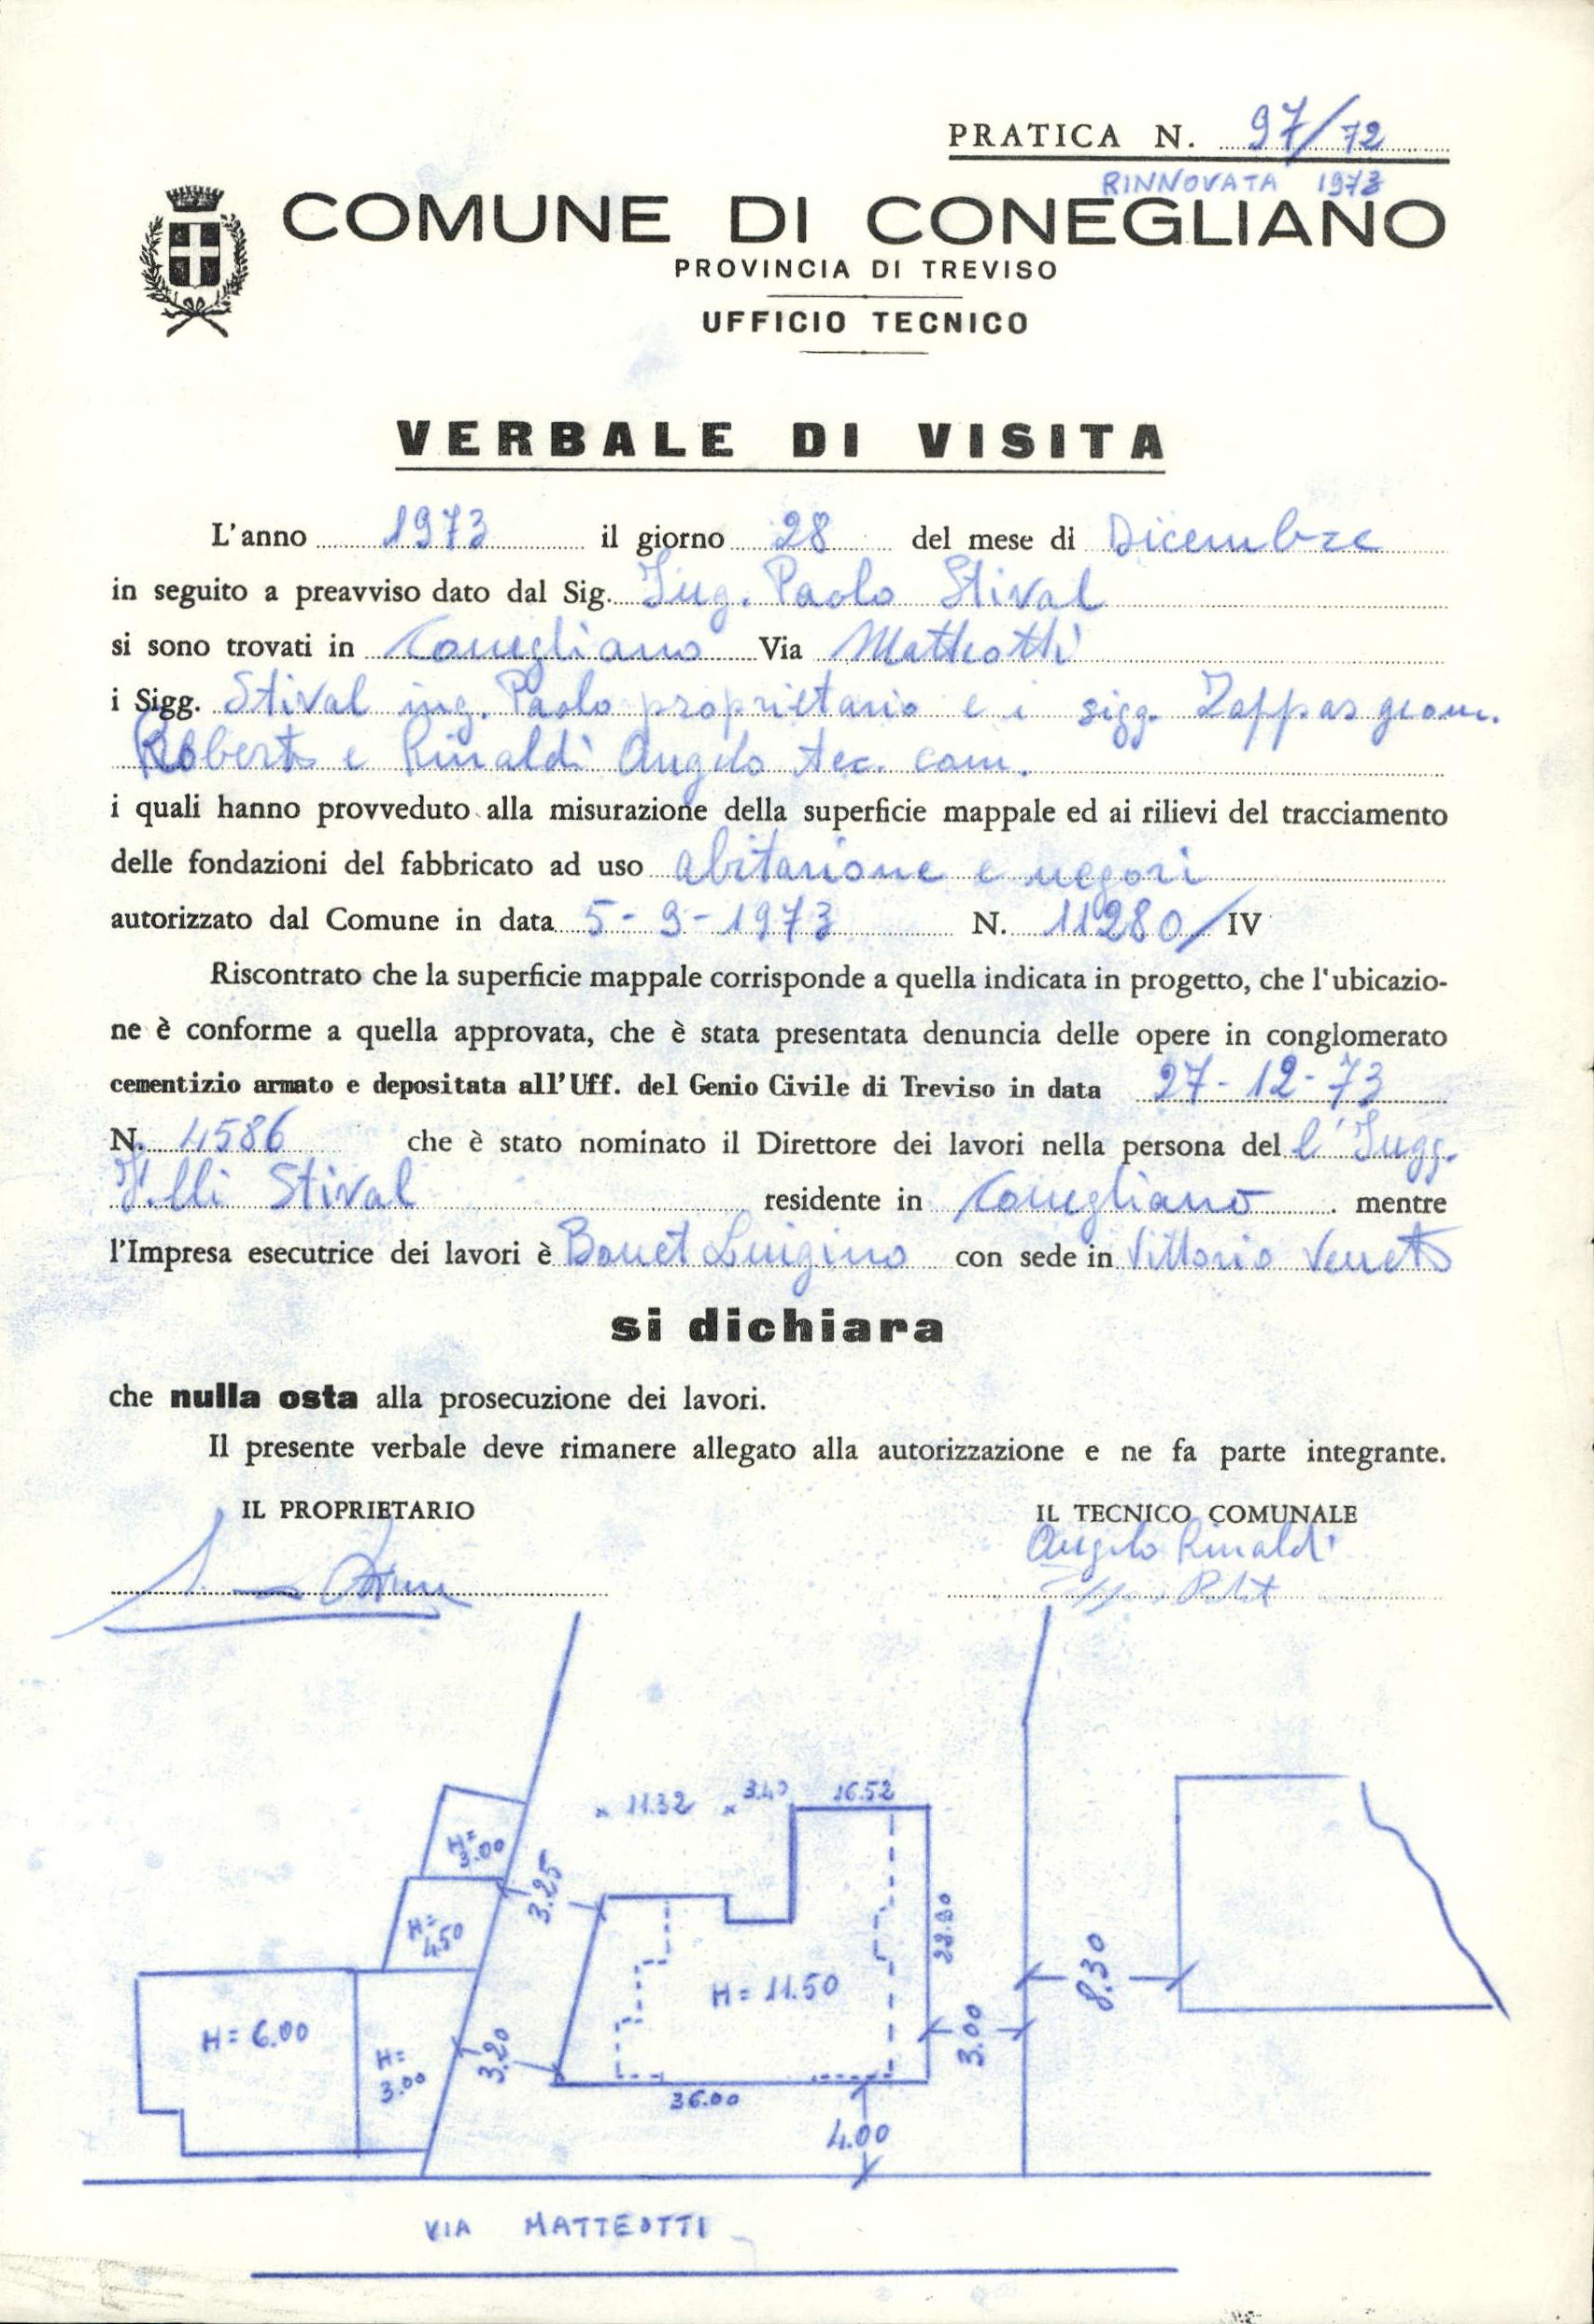 PRATICA N. 97/72
RINNOVATA 1973
COMUNE DI CONEGLIANO
PROVINCIA DI TREVISO
UFFICIO TECNICO
VERBALE DI VISITA
L'anno 1973 il giorno 28 del mese di Dicembre
in seguito a preavviso dato dal Sig. Ing. Paolo Stival
si sono trovati in Conegliano Via Matteotti
i Sigg. Stival ing. Paolo proprietario e i sigg. Zappas geom.
Roberto e Rinaldi Angelo tec. com.
i quali hanno provveduto alla misurazione della superficie mappale ed ai rilievi del tracciamento
delle fondazioni del fabbricato ad uso abitazione e negozi
autorizzato dal Comune in data 5-9-1973 N. 11280/IV
Riscontrato che la superficie mappale corrisponde a quella indicata in progetto, che l'ubicazio-
ne è conforme a quella approvata, che è stata presentata denuncia delle opere in conglomerato
cementizio armato e depositata all'Uff. del Genio Civile di Treviso in data 27-12-73
N. 4586 che è stato nominato il Direttore dei lavori nella persona del l'Ingg.
F.lli Stival residente in Conegliano. mentre
l'Impresa esecutrice dei lavori è Bonet Luigino con sede in Vittorio Veneto
si dichiara
che nulla osta alla prosecuzione dei lavori.
Il presente verbale deve rimanere allegato alla autorizzazione e ne fa parte integrante.
IL PROPRIETARIO IL TECNICO COMUNALE
Angelo Rinaldi
11.32 3.40 16.52
H=
3.00
3.25
H=
4.50
H= 11.50
8.30
H= 6.00
H=
3.00
3.20
3.00
36.00
4.00
VIA MATTEOTTI